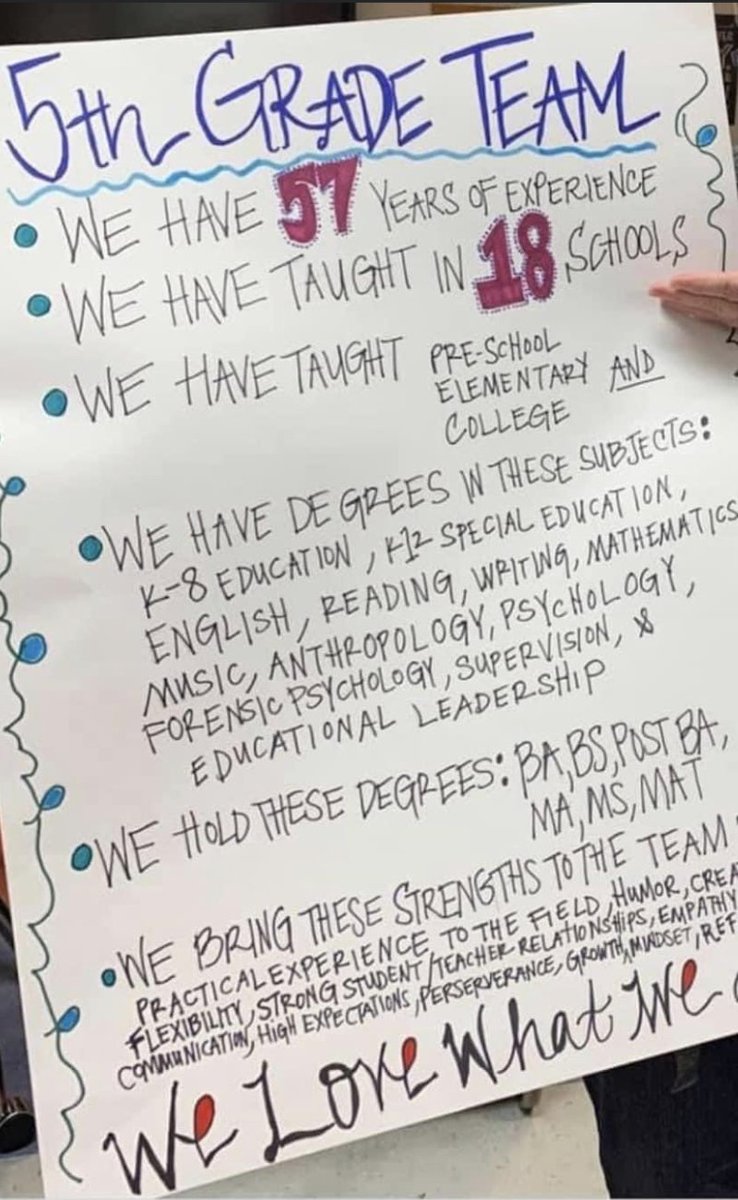 5th GRADE TEAM
• WE HAVE 57 YEARS OF EXPERIENCE
• WE HAVE TAUGHT IN 18 SCHOOLS
• WE HAVE TAUGHT PRE-SCHOOL
ELEMENTARY AND
COLLEGE
• WE HAVE DEGREES IN THESE SUBJECTS:
K-8 EDUCATION, K-12 SPECIAL EDUCATION,
ENGLISH, READING, WRITING, MATHEMATICS
MUSIC, ANTHROPOLOGY, PSYCHOLOGY,
FORENSIC PSYCHOLOGY, SUPERVISION, &
EDUCATIONAL LEADERSHIP
• WE HOLD THESE DEGREES: BA, BS, POST BA,
MA, MS, MAT
• WE BRING THESE STRENGTHS TO THE TEAM
PRACTICAL EXPERIENCE TO THE FIELD, HUMOR,
FLEXIBILITY, STRONG STUDENT/TEACHER RELATIONSHIPS, EMPATHY
COMMUNICATION, HIGH EXPECTATIONS, PERSERVERANCE, GROWTH, MINDSET,
We Love What We